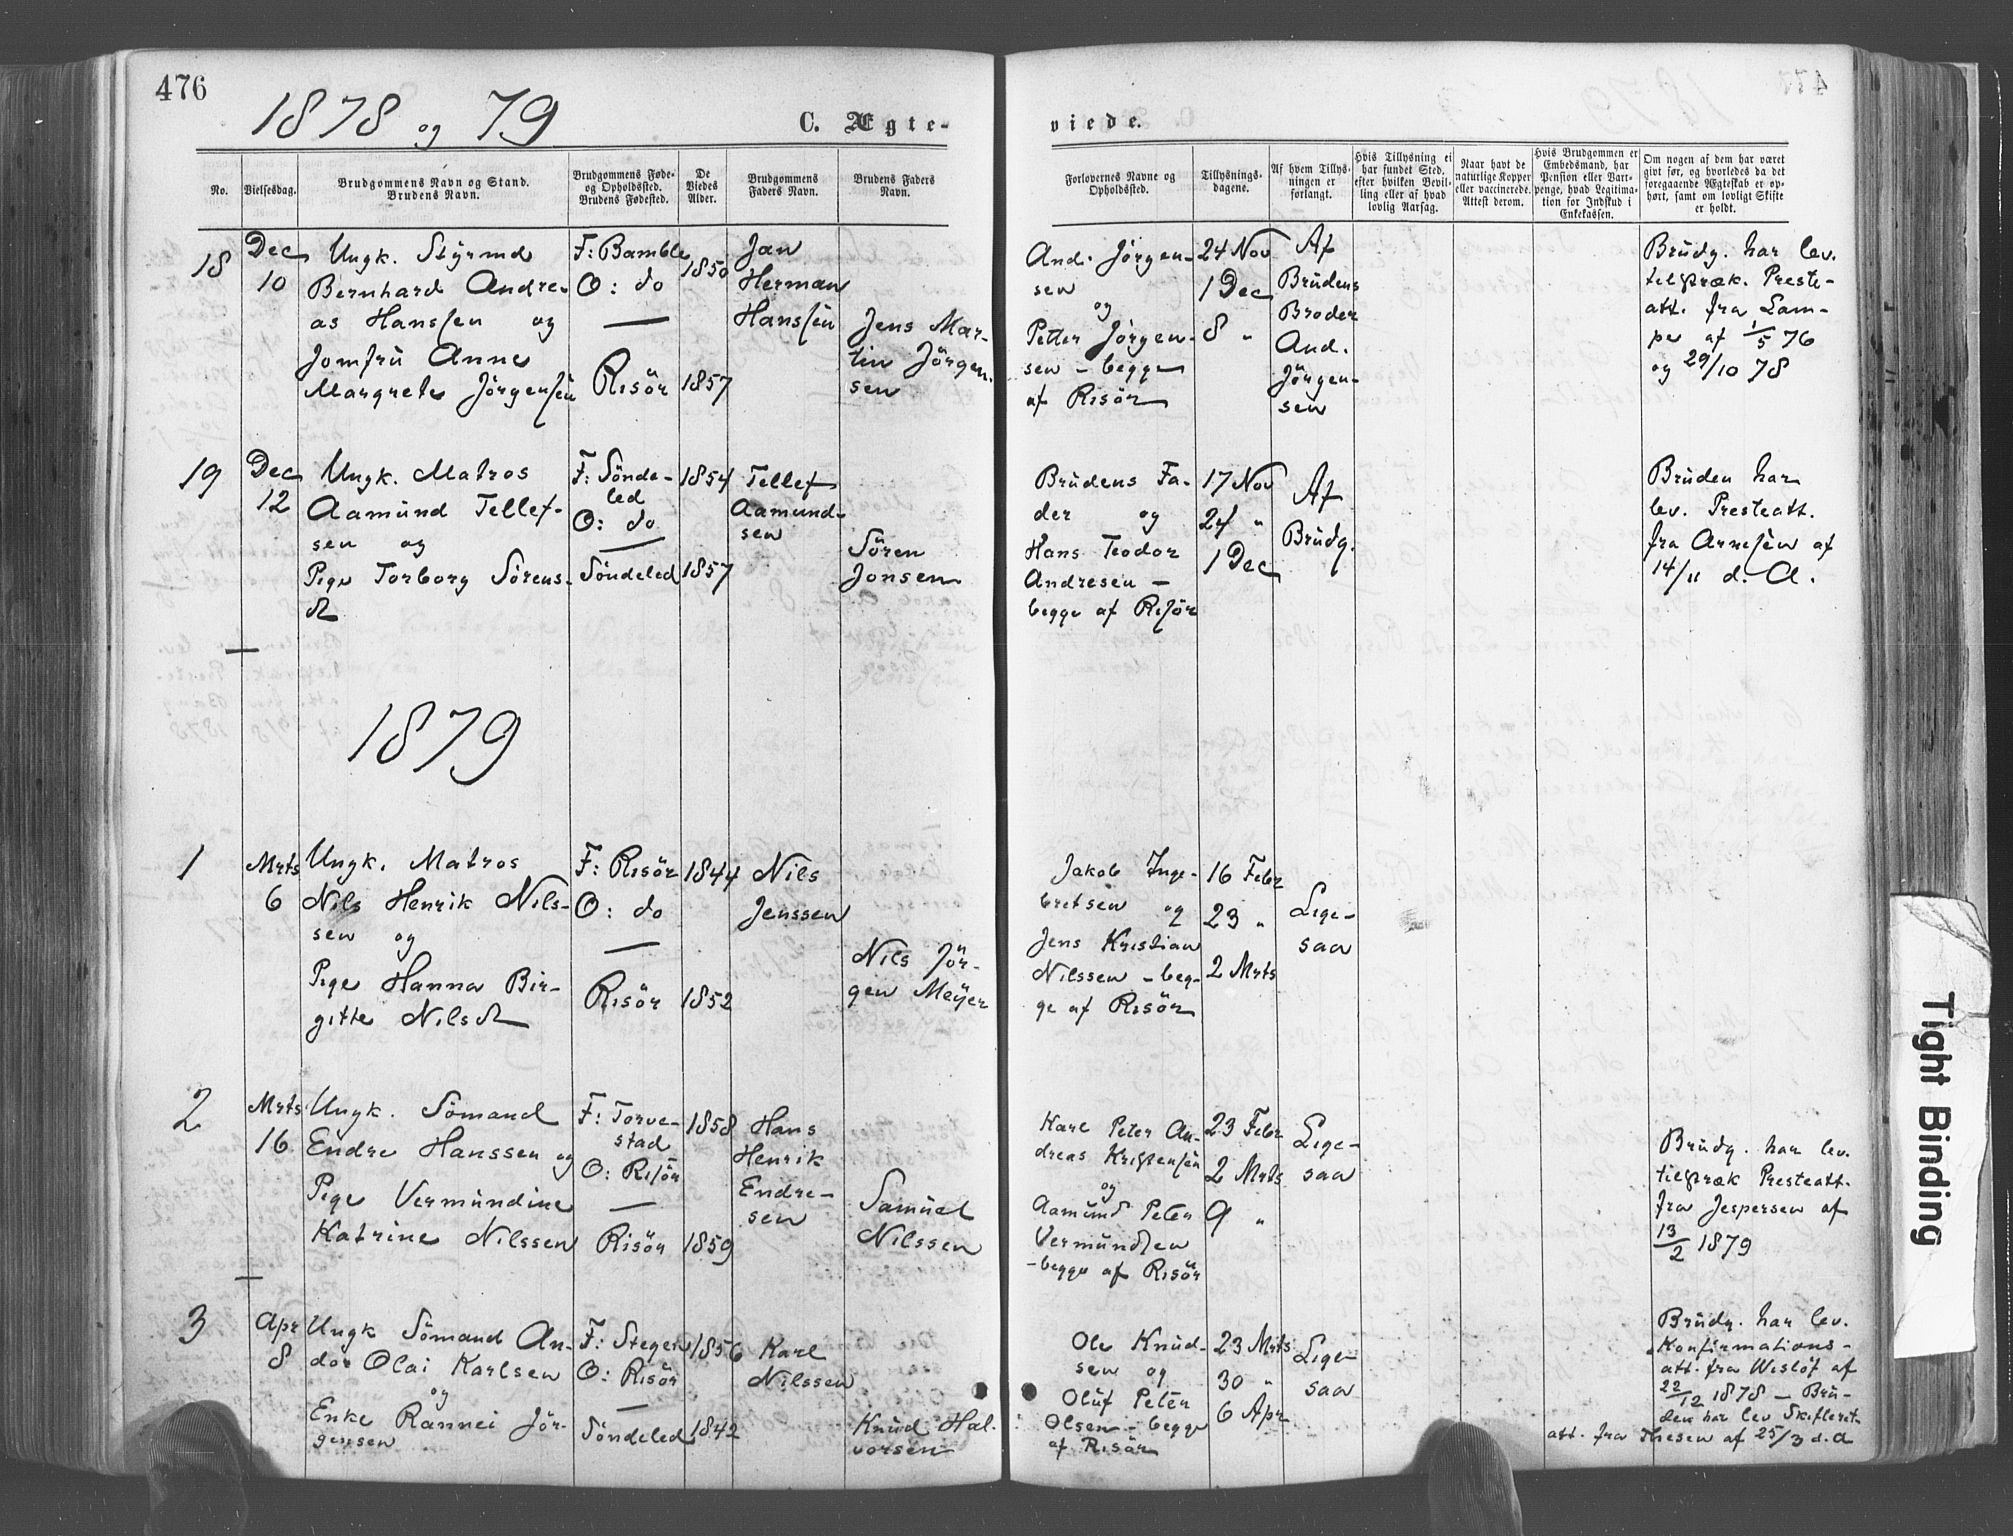 476
1878 og 79
C. Ægte-
viede.
No.
Vielsesdag.
Brudgommens Navn og Stand.
Brudens Navn.
Brudgommens Føde-
og Opholdssted.
Brudens Fødested.
De
Viedes
Alder.
Brudgommens
Faders Navn.
Brudens Faders
Navn.
Forlovernes Navne og
Opholdssted.
Tillysnings-
dagene.
Af hvem Tillys-
ningen er
forlangt.
Hvis Tillysning ei
har fundet Sted,
efter hvilken Bevil-
ling eller af hvad
lovlig Aarsag.
Naar havt de
naturlige Kopper
eller vaccinerede.
Attest derom.
Hvis Brudgommen er
Embedsmand, har
Pension eller Vart-
penge, hvad Legitima-
tion for Indskud i
Enkekassen.
Om nogen af dem har været
givt før, og hvorledes da det
foregaaende Ægteskab er op-
hørt, samt om lovligt Skifte
er holdt.
18
Dec
10
Ungk. Styrmd
Bernhard Andre-
as Hanssen og
Jomfru Anne
Margrete Jörgensen
F: Bamble
O: do
Risör
1850
1857
Jan
Herman
Hanssen
Jens Mar-
tin Jörgen-
sen
And. Jörgen-
sen
og
Petter Jörgen-
sen - begge
af Risör
24 Nov
1 Dec
8 "
Af
Brudens
Broder
And.
Jörgen-
sen
Brudg. har lev.
tilstræk. Preste-
att. fra Lam-
pe af 1/5 76
og 29/10 78
19
Dec
12
Ungk. Matros
Aamund Tellef-
sen og
Pige Torborg Sörens-
dt
F: Sönde-
led
O: do
Söndeled
1854
1857
Tellef
Aamund-
sen
Sören
Jonsen
Brudens Fa-
der og
Hans Teodor
Andresen -
begge af Risör
17 Nov
24 "
1 Dec
Af
Brudg.
Bruden har
lev. Presteatt.
fra Arnesen af
14/11 d. A.
1879
1
Mrts
6
Ungk. Matros
Nils Henrik Nils-
sen og
Pige Hanna Bir-
gitte Nilsdt
F: Risör
O: do
Risör
1844
1852
Nils
Jenssen
Nils Jör-
gen Meyer
Jakob Inge-
bretsen og
Jens Kristian
Nilssen - beg-
ge af Risör
16 Febr
23 "
2 Mrts
Lige-
saa
2
Mrts
16
Ungk. Sömand
Endre Hanssen og
Pige Vermundine
Katrine Nilssen
F: Torve-
stad
O: Risör
Risör
1858
1859
Hans
Henrik
Endre-
sen
Samuel
Nilssen
Karl Peter An-
dreas Kristensen
og
Aamund Peter
Vermundsen
- begge af Risör
23 Febr
2 Mrts
9 "
Lige-
saa
Brudg. har lev.
tilstræk Presteatt.
fra Jespersen af
13/2 1879
3
Apr
8
Ungk Sömand An-
dor Olai Karlsen
og
Enke Rannei Jör-
gensen
F: Stegen
O: Risör
Söndeled
1856
1842
Karl
Nilssen
Knud Hal-
vorsen
Ole Knud-
sen og
Oluf Peter
Olsen - begge
af Risör
23 Mrts
30 "
6 Apr
Lige-
saa
Brudg. har lev.
Konfirmations-
att. fra Wislöf af
22/12 1878 - Bru-
den har lev Skifteret-
att. fra Thesen af 25/3 d. A
Tight Binding